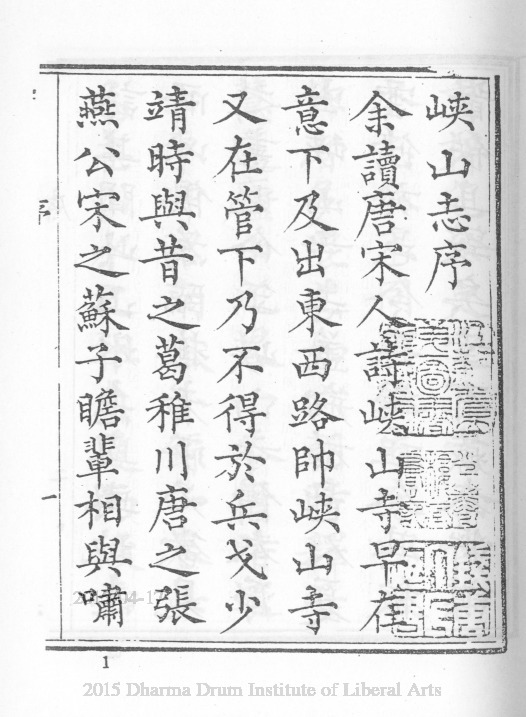 峽山志序
余讀唐宋人詩峽山寺早在
意下及出東西路帥峽山寺
又在管下乃不得於兵戈少
靖時與昔之葛稚川唐之張
燕公宋之蘇子瞻輩相與嘯
序
一
1
2015 Dharma Drum Institute of Liberal Arts